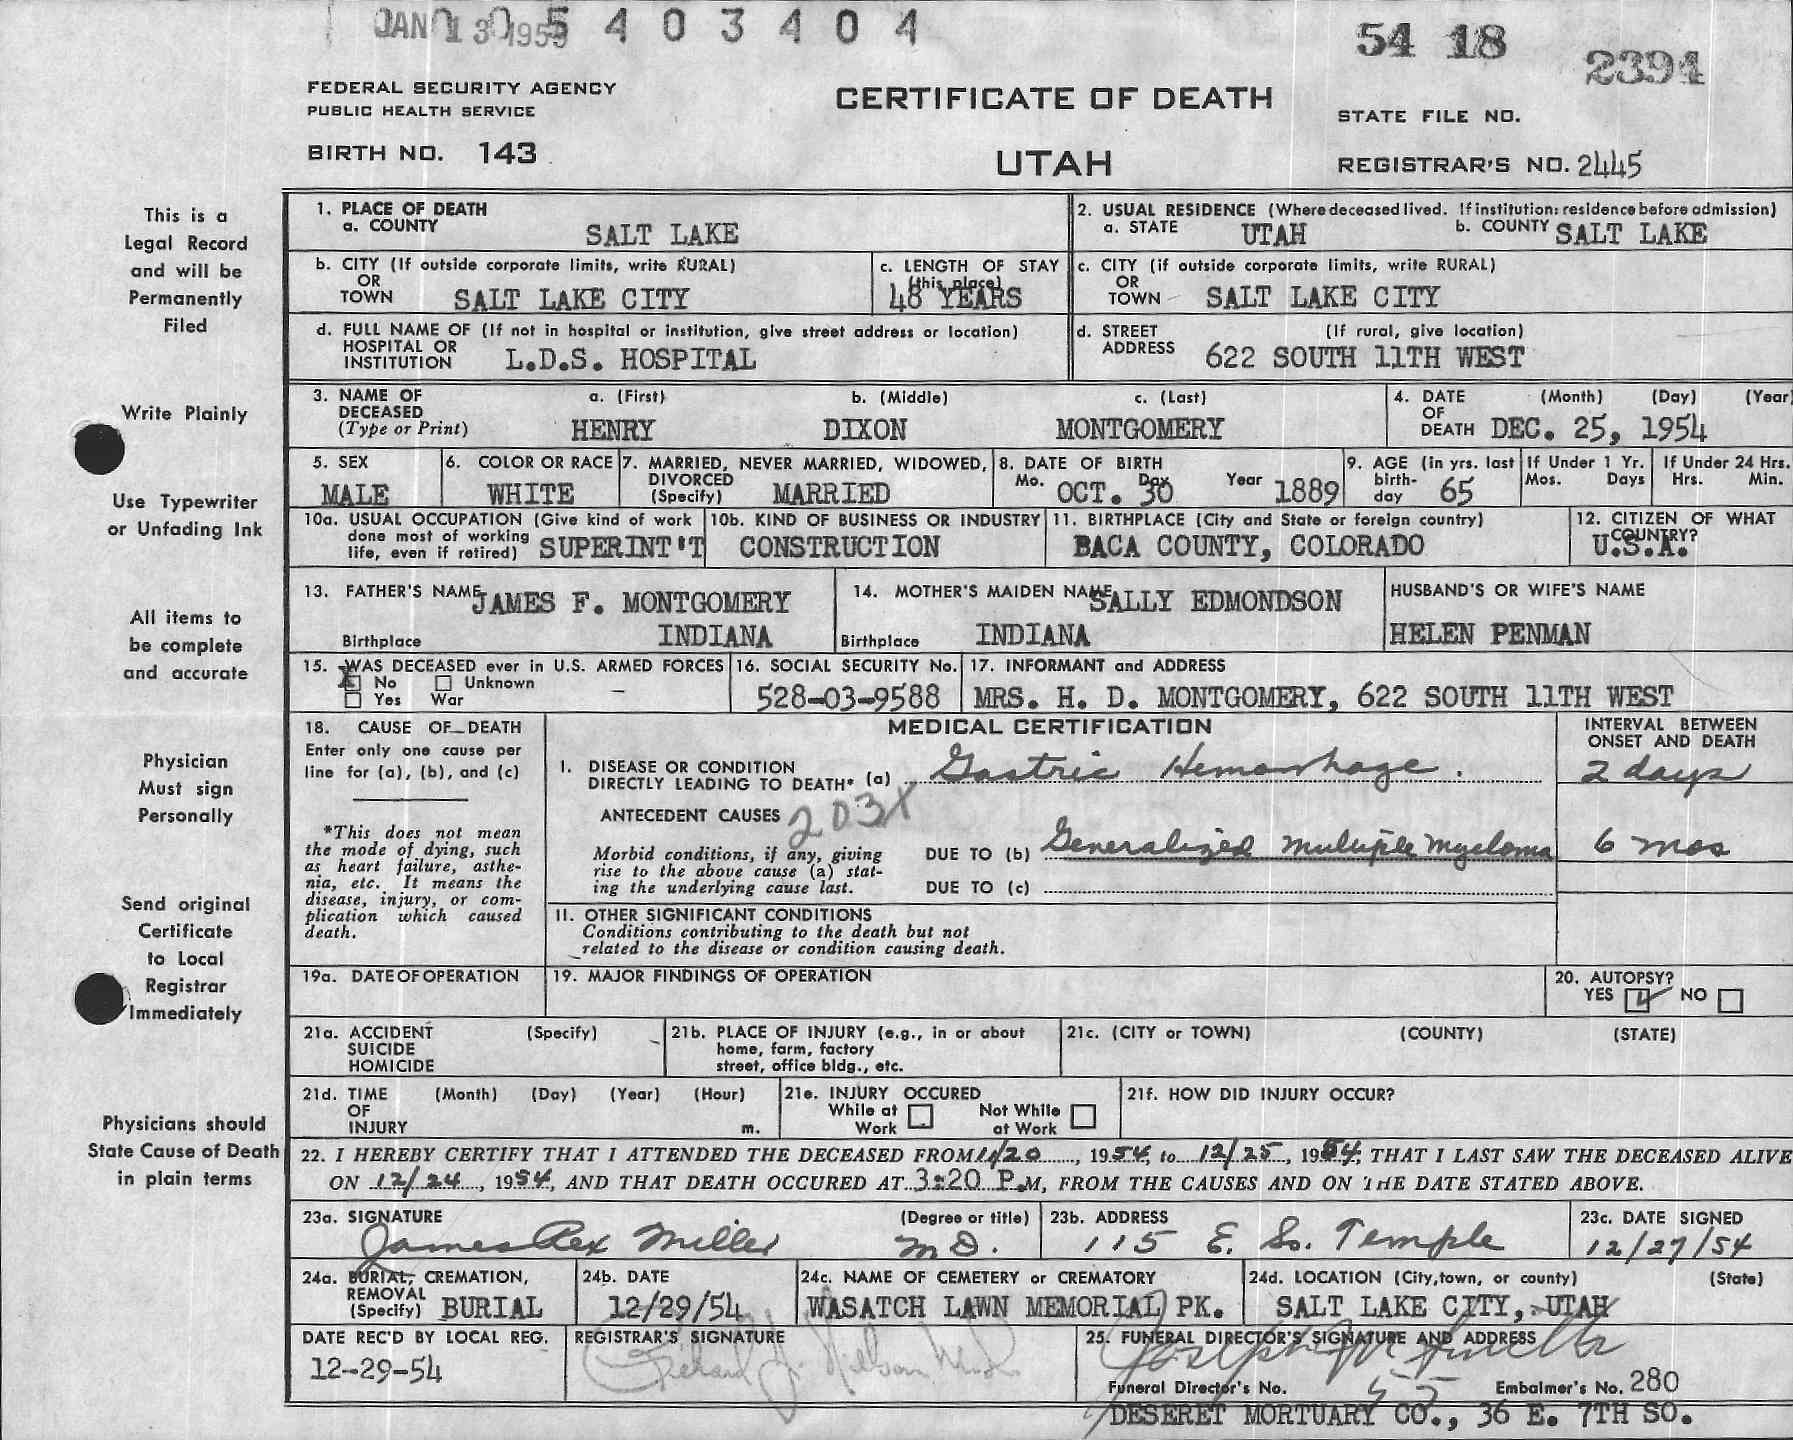 JAN 13 1955 5 4 0 3 4 0 4
54 18 2394
FEDERAL SECURITY AGENCY
PUBLIC HEALTH SERVICE
BIRTH NO. 143
CERTIFICATE OF DEATH
UTAH
STATE FILE NO.
REGISTRAR'S NO. 2445
This is a
Legal Record
and will be
Permanently
Filed
Write Plainly
Use Typewriter
or Unfading Ink
All items to
be complete
and accurate
Physician
Must sign
Personally
Send original
Certificate
to Local
Registrar
Immediately
Physicians should
State Cause of Death
in plain terms
1. PLACE OF DEATH
a. COUNTY SALT LAKE
2. USUAL RESIDENCE (Where deceased lived. If institution: residence before admission)
a. STATE UTAH b. COUNTY SALT LAKE
b. CITY (If outside corporate limits, write RURAL)
OR
TOWN SALT LAKE CITY
c. LENGTH OF STAY
(this place)
48 YEARS
c. CITY (if outside corporate limits, write RURAL)
OR
TOWN SALT LAKE CITY
d. FULL NAME OF (If not in hospital or institution, give street address or location)
HOSPITAL OR
INSTITUTION L.D.S. HOSPITAL
d. STREET (If rural, give location)
ADDRESS 622 SOUTH 11TH WEST
3. NAME OF DECEASED (Type or Print)
a. (First) b. (Middle) c. (Last)
HENRY DIXON MONTGOMERY
4. DATE (Month) (Day) (Year)
OF
DEATH DEC. 25, 1954
5. SEX
MALE
6. COLOR OR RACE
WHITE
7. MARRIED, NEVER MARRIED, WIDOWED,
DIVORCED
(Specify) MARRIED
8. DATE OF BIRTH
Mo. Day Year
OCT. 30 1889
9. AGE (in yrs. last
birth-
day 65
If Under 1 Yr.
Mos. Days
If Under 24 Hrs.
Hrs. Min.
10a. USUAL OCCUPATION (Give kind of work
done most of working
life, even if retired) SUPERINT'T
10b. KIND OF BUSINESS OR INDUSTRY
CONSTRUCTION
11. BIRTHPLACE (City and State or foreign country)
BACA COUNTY, COLORADO
12. CITIZEN OF WHAT
COUNTRY?
U.S.A.
13. FATHER'S NAME JAMES F. MONTGOMERY
Birthplace INDIANA
14. MOTHER'S MAIDEN NAME SALLY EDMONDSON
Birthplace INDIANA
HUSBAND'S OR WIFE'S NAME
HELEN PENMAN
15. WAS DECEASED ever in U.S. ARMED FORCES
X No Unknown
Yes War –
16. SOCIAL SECURITY No.
528-03-9588
17. INFORMANT and ADDRESS
MRS. H. D. MONTGOMERY, 622 SOUTH 11TH WEST
18. CAUSE OF DEATH
Enter only one cause per
line for (a), (b), and (c)
*This does not mean
the mode of dying, such
as heart failure, asthe-
nia, etc. It means the
disease, injury, or com-
plication which caused
death.
MEDICAL CERTIFICATION
INTERVAL BETWEEN
ONSET AND DEATH
I. DISEASE OR CONDITION
DIRECTLY LEADING TO DEATH* (a) Gastric Hemorrhage. 2 days
ANTECEDENT CAUSES 203X
Morbid conditions, if any, giving
rise to the above cause (a) stat-
ing the underlying cause last.
DUE TO (b) Generalized Multiple Myeloma 6 mos
DUE TO (c)
II. OTHER SIGNIFICANT CONDITIONS
Conditions contributing to the death but not
related to the disease or condition causing death.
19a. DATE OF OPERATION
19. MAJOR FINDINGS OF OPERATION
20. AUTOPSY?
YES NO
21a. ACCIDENT (Specify)
SUICIDE
HOMICIDE
21b. PLACE OF INJURY (e.g., in or about
home, farm, factory
street, office bldg., etc.
21c. (CITY or TOWN) (COUNTY) (STATE)
21d. TIME (Month) (Day) (Year) (Hour)
OF
INJURY m.
21e. INJURY OCCURED
While at Work Not While at Work
21f. HOW DID INJURY OCCUR?
22. I HEREBY CERTIFY THAT I ATTENDED THE DECEASED FROM 11/20, 1954, to 12/25, 1954, THAT I LAST SAW THE DECEASED ALIVE
ON 12/24, 1954, AND THAT DEATH OCCURED AT 3:20 P.M, FROM THE CAUSES AND ON THE DATE STATED ABOVE.
23a. SIGNATURE (Degree or title)
James Rex Miller M.D.
23b. ADDRESS
115 E. So. Temple
23c. DATE SIGNED
12/27/54
24a. BURIAL, CREMATION,
REMOVAL
(Specify) BURIAL
24b. DATE
12/29/54
24c. NAME OF CEMETERY or CREMATORY
WASATCH LAWN MEMORIAL PK.
24d. LOCATION (City, town, or county) (State)
SALT LAKE CITY, UTAH
DATE REC'D BY LOCAL REG.
12-29-54
REGISTRAR'S SIGNATURE
25. FUNERAL DIRECTOR'S SIGNATURE AND ADDRESS
Funeral Director's No. 55 Embalmer's No. 280
DESERET MORTUARY CO., 36 E. 7TH SO.